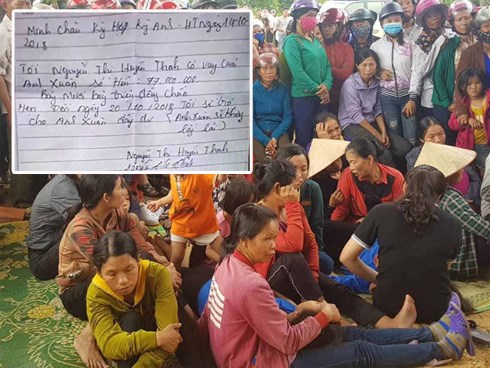 Minh Châu Kỳ Hợp Kỳ Anh - HT ngày 14/10
2018
Tôi Nguyễn Thị Huyền Thanh có vay cháu
Anh Xuân số tiền: 77.000.000
Bảy mươi bảy triệu đồng chẵn
Hẹn Đến ngày 20/10/2018 Tôi sẽ trả
cho Anh Xuân đầy đủ (Anh Xuân sẽ không
lấy lãi)
Nguyễn Thị Huyền Thanh